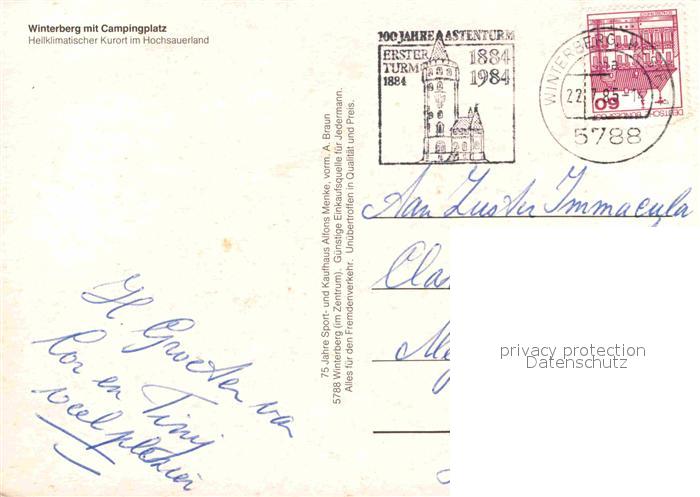 Winterberg mit Campingplatz
Heilklimatischer Kurort im Hochsauerland
100 JAHRE ASTENTURM
ERSTER TURM 1884
1884
1984
WINTERBERG
22.7.85
5788
60
DEUTSCHE BUNDESPOST
75 Jahre Sport- und Kaufhaus Alfons Menke, vorm. A. Braun
5788 Winterberg (im Zentrum). Günstige Einkaufsquelle für Jedermann.
Alles für den Fremdenverkehr. Unübertroffen in Qualität und Preis.
Aan Zuster Immacula
Clas
H. Groeten van
Cor en Tiny
veel plezier
privacy protection
Datenschutz